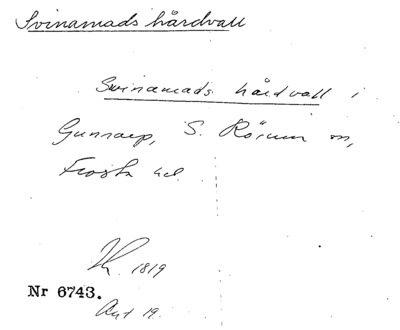 Svinamads hårdvall
Svinamads hårdvall i
Gunnarp, S. Rörum sn,
Frosta hd.
1819
Nr 6743.
Avt 19.